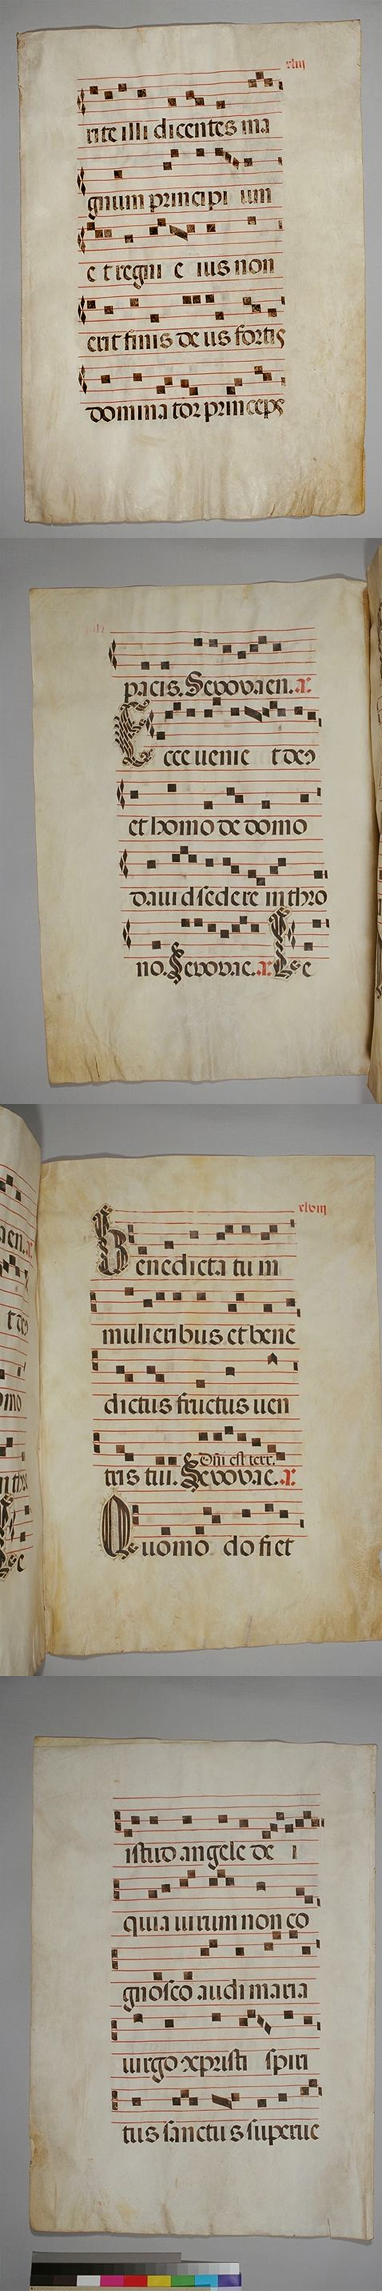 rite illi dicentes ma
gnum principi um
e t regni e ius non
erit finis de us fortis
domina tor princeps
pacis. Sevovaen. a.
Ecce ueniet deꝰ
et homo de domo
daui d sedere in thro
no. Sevovae. a. Ecce
xlviij
Benedicta tu in
mulieribus et bene
dictus fructus uen
Dñi est terr.
tris tui. Sevovae. a.
Quomo do fiet
istud angele de i
quia uirum non co
gnosco audi maria
uirgo xpristi spiri
tus sanctu s superue